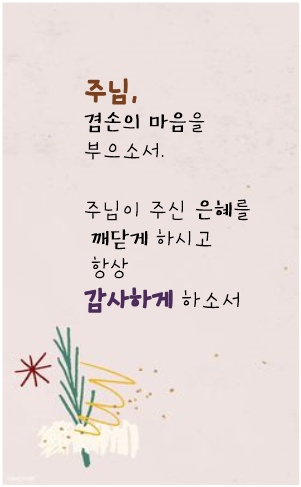 주님,
겸손의 마음을
부으소서.
주님이 주신 은혜를
깨닫게 하시고
항상
감사하게 하소서